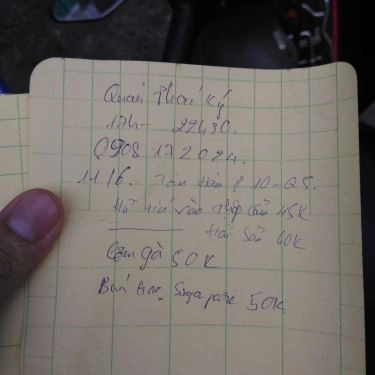 Quán Thai Ký
17h - 22h30.
0908 172024.
11/6. P 10-Q5.
Hủ tiếu xào Thập Cẩm 45K
Hải Sản 60K
Cơm gà 50K
Singapore 50K